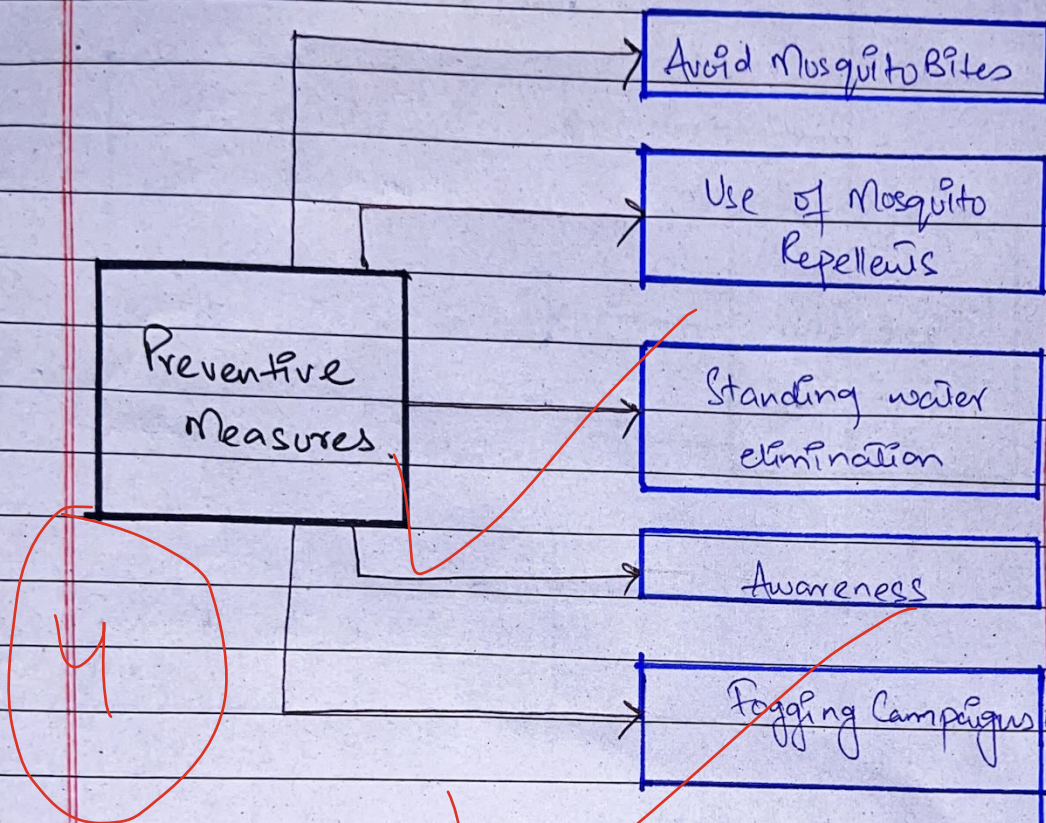 Avoid Mosquito Bites
Use of Mosquito
Repellents
Preventive
Measures.
Standing water
elimination
Awareness
4
Fogging Campaigns